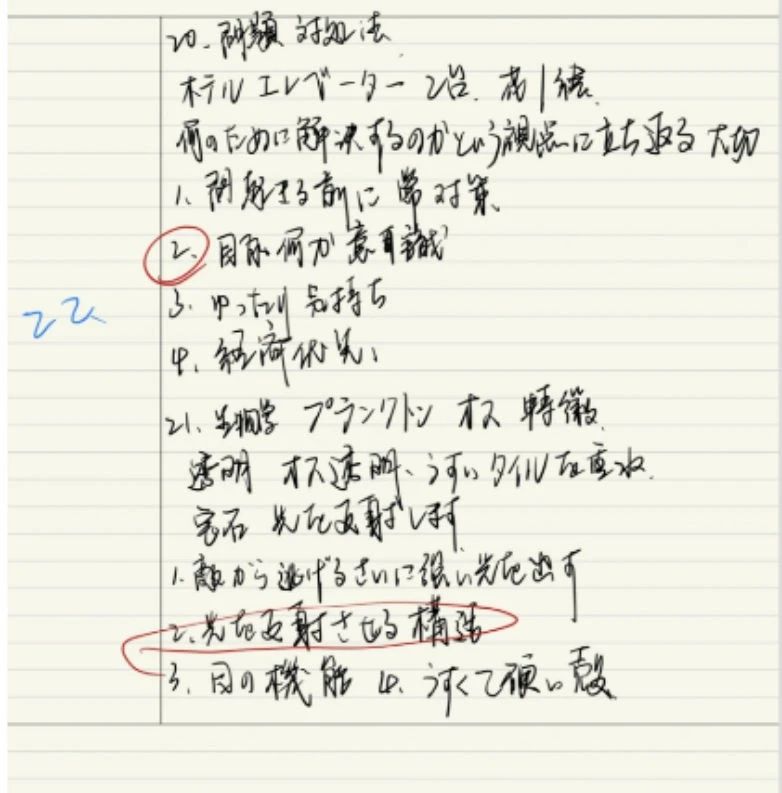 20. 問題 対処法
ホテル エレベーター 2台.
何のために解決するのかという視点に立ち返る 大切
1. 問題 前に 対策
2. 目的 何か 意識
3. ゆったり 気持ち
22
4. 経済優先
21. 生物学 プランクトン オス 特徴
透明 オス透明、うすいタイルを
宝石 光を反射します
1. 敵から逃げるさいに強い光を出す
2. 光を反射させる構造
3. 目の機能 4. うすくて硬い殻